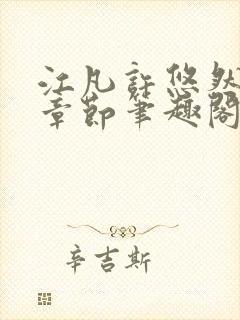 江凡許悠然
章節筆趣閣
辛吉斯